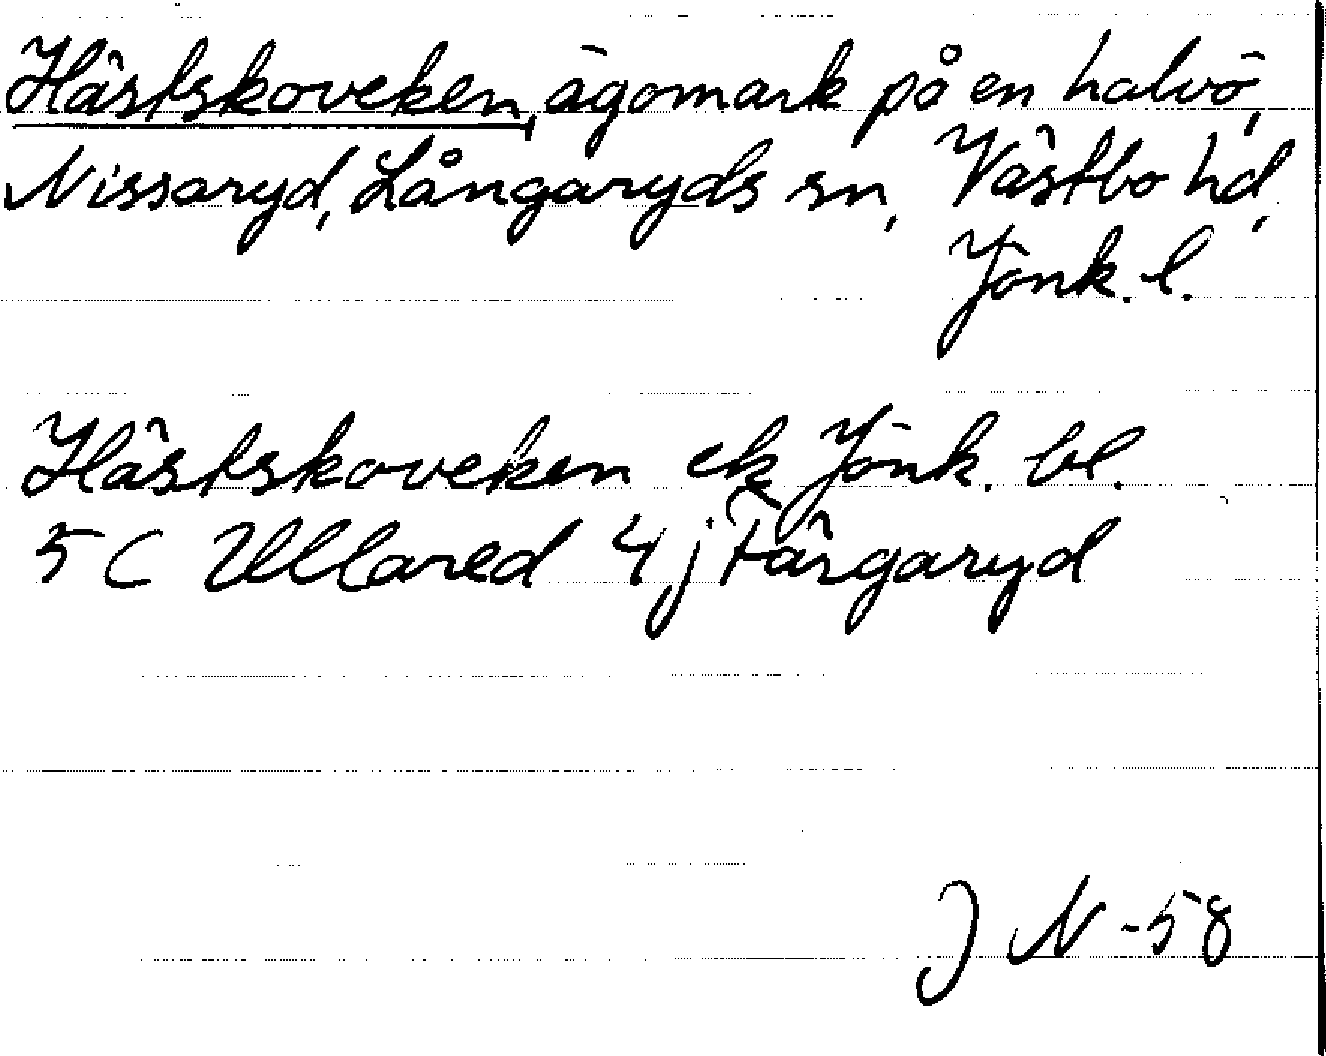 Hästskoveken, ägomark på en halvö,
Nissaryd, Långaryds sn, Västbo hd,
Jönk. l.
Hästskoveken ek Jönk. bl.
5 C Ullared 4 j Färgaryd
J N -58